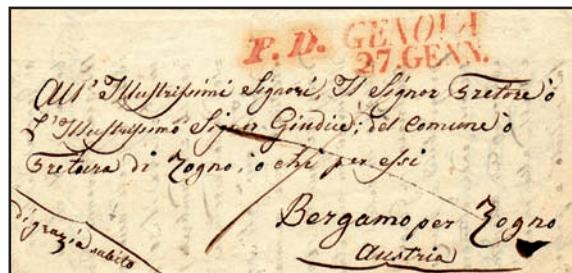 P. D. GENOVA
27. GENN.
All' Illustrissimi Signori, Il Signor Pretore ò
L'Illustrissimo Signor Giudice; del Comune ò
Pretura di Zogno, ò chi per essi
Bergamo per Zogno
Austria
di grazia subito